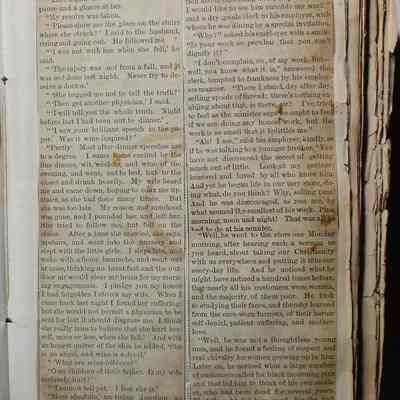 pause and a glance at her.
"My resolve was taken.
"'Please show me the place on the stairs
where she struck?' I said to the husband,
rising and going out. He followed me.
"'I was not with her when she fell,' he
said.
"'The injury was not from a fall, and it
was not done last night. Never try to de-
ceive a doctor.'
"'She begged me not to tell the truth?'
"'Then get another physician,' I said.
"'I will tell you the whole truth. Night
before last I had been out to dinner.'
"'I saw your brilliant speech in the pa-
per. Was it wine inspired?'
"'Partly. Most after-dinner speeches are
to a degree. I came home excited by the
fine dinner, wit, wisdom and wine of the
evening, and went, not to bed, but to the
closet and drank heavily. My wife heard
me and came down, hoping to coax me up
stairs, as she had done many times. But
she was too late. My reason and manhood
was gone, and I pounded her, and left her.
She tried to follow me, but fell on the
stairs. After a time she
upstairs, and went into the nursery and
slept with the little girls. I slept late, and
woke with a fierce headache, and went out
at once, thinking my breakfast and the out
door air would clear my brain for my morn-
ing engagements. I pledge you my honor
I had forgotten I struck my wife. When I
came back last night I found her suffering;
but she would not permit a physician to be
sent for lest it should disgrace me. I think
she really tries to believe that she hurt her-
self, more or less, when she fell.' And with
an honest quiver of the chin he added, 'She
is an angel, and wine is a devil.'
"'What are wine-bibbers?'
"'Own children of their father. Is my wife
seriously hurt?'
"'I cannot tell yet. I fear she is.'
I would like to see him surprise my work,'
said a dry goods clerk to his employer, with
whom he was dining by a special invitation.
"'Why?' asked his employer with a smile.
'Is your work so peculiar that you don't
dignify it?'
"'I don't complain, or, of my work. But—
well, you know what it is,' answered the
clerk, tempted to frankness by his employer's
manner. 'There I stand, day after day,
selling spools of thread; there's nothing en-
nobling about that, is there, sir? I've tried
to feel as the minister says we ought to feel
if we are doing any honest work, but the
work is so small that it belittles me.'
"'Ah! I see,' said his employer, kindly, as
if he was talking to a younger brother. 'You
have not discovered the secret of getting
much out of little. Look at my pastor;
honored and loved by all who know him.
And yet he began life in our very store, do-
ing what, do you think? Why, selling pins!
And he was discouraged, as you are, by
what seemed the smallest of his work. Pins
morning, noon and night! That was all he
had to do at his counter.
"'Well, he went to the store one Monday
morning, after hearing such a sermon as
you heard, about taking our Christianity
with us everywhere and putting it into our
every-day life. And he noticed what he
might have noticed a hundred times before,
that nearly all his customers were women,
and the majority of them poor. He took
to studying their faces, and thereby learned
from the care-worn features, of their heroic
self denial, patient suffering, and mother-
love.
"'Well, he was not a thoughtless young
man, and he found a feeling of respect and
real chivalry for women growing up in him.
Later on, he noticed what a large number
of
and that led him to think of his own moth-
er, who had been dead for several years